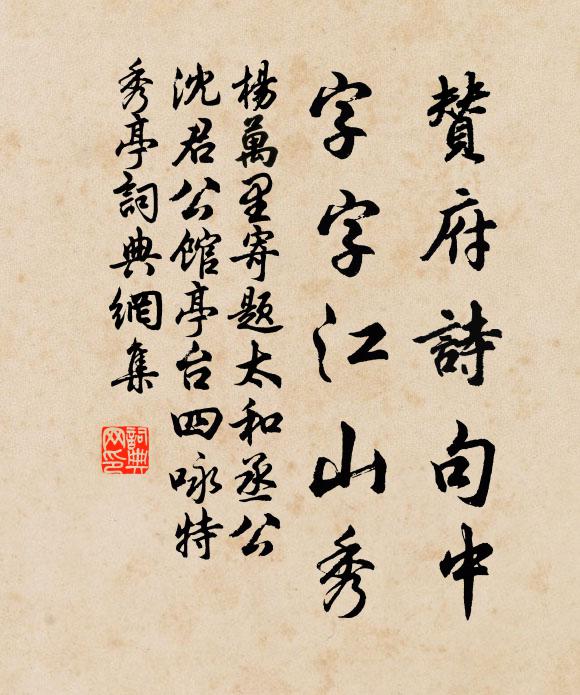 贊府詩句中
字字江山秀
楊萬里寄題太和丞公
沈君公館亭台四咏特
秀亭詞典網集
詞典网印